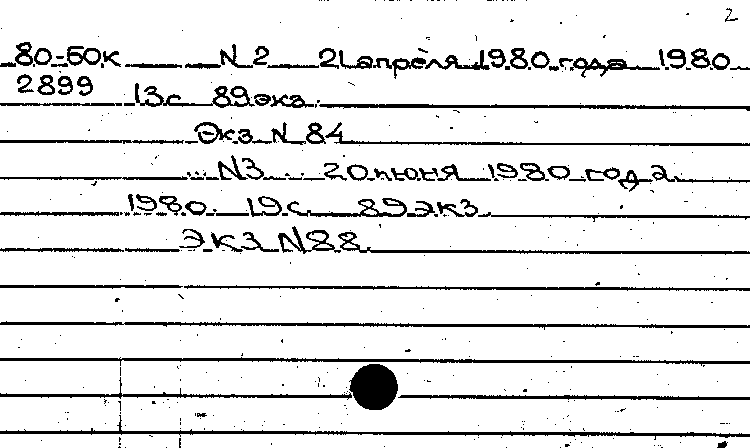 2
80-БОК N 2 21 апреля 1980 года 1980
2899 13с 89экз.
Экз N 84
... N3 ... 20 июня 1980 года.
1980. 19с. 89экз.
Экз N88.